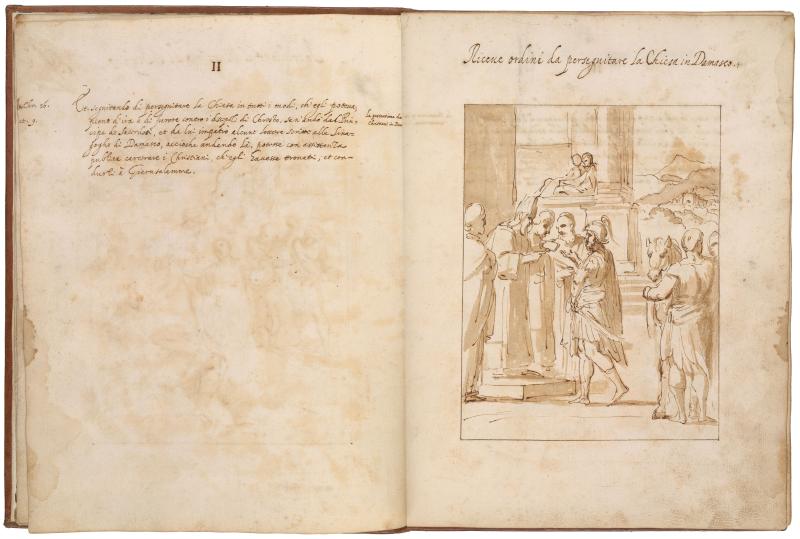 II
Et seguitando di perseguitare la Chiesa in tutti i modi, ch'egli poteua,
pieno d'ira è di furore contro i discepoli di Christo, se n'andò dal Prin-
cipe de Sacerdoti, et da lui impetrò alcune lettere scritte alle Sina-
goghe di Damasco, acciochè andando là, potesse con assistenza
publica carcerare i Christiani, ch'egli hauesse trouati, et con-
durli à Gierusalemme.
Riceue ordini da perseguitare la Chiesa in Damasco.